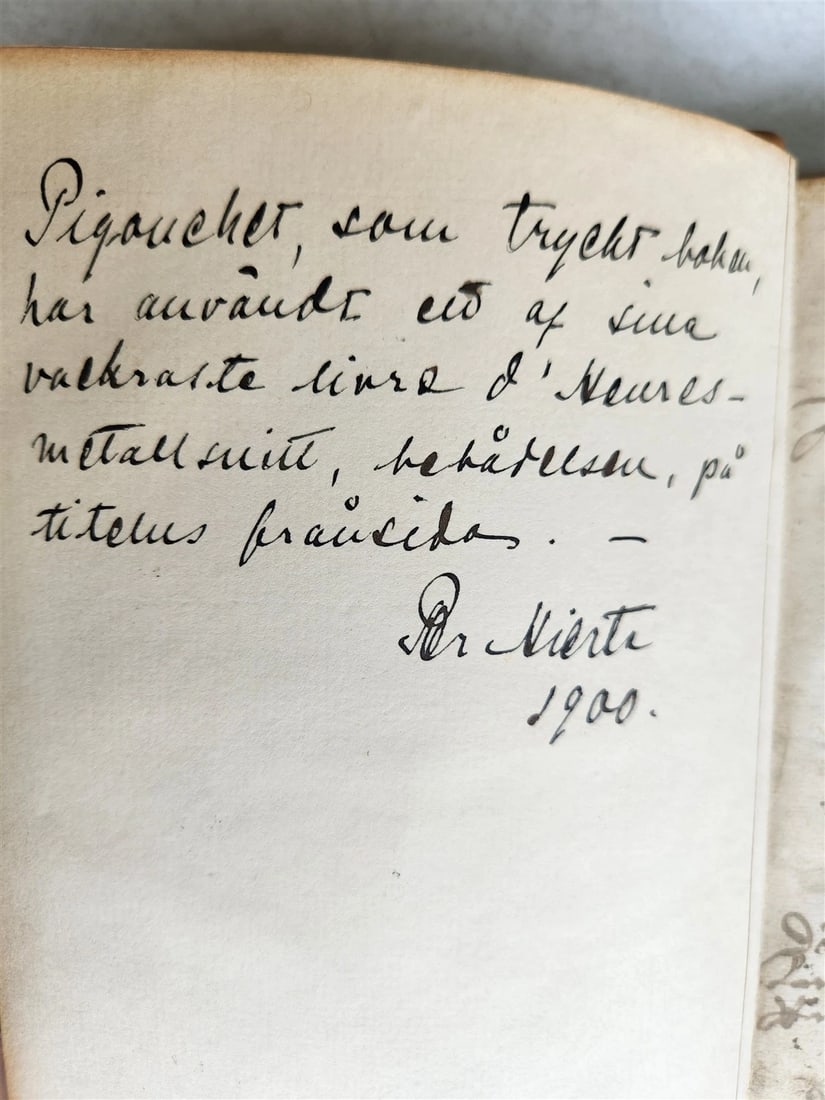 Pigouchet, som tryckt boken,
har användt ett af sina
vackraste livre d'Heures-
metallsnitt, bebådelsen, på
titelns frånsida. —
Per Hierta
1900.